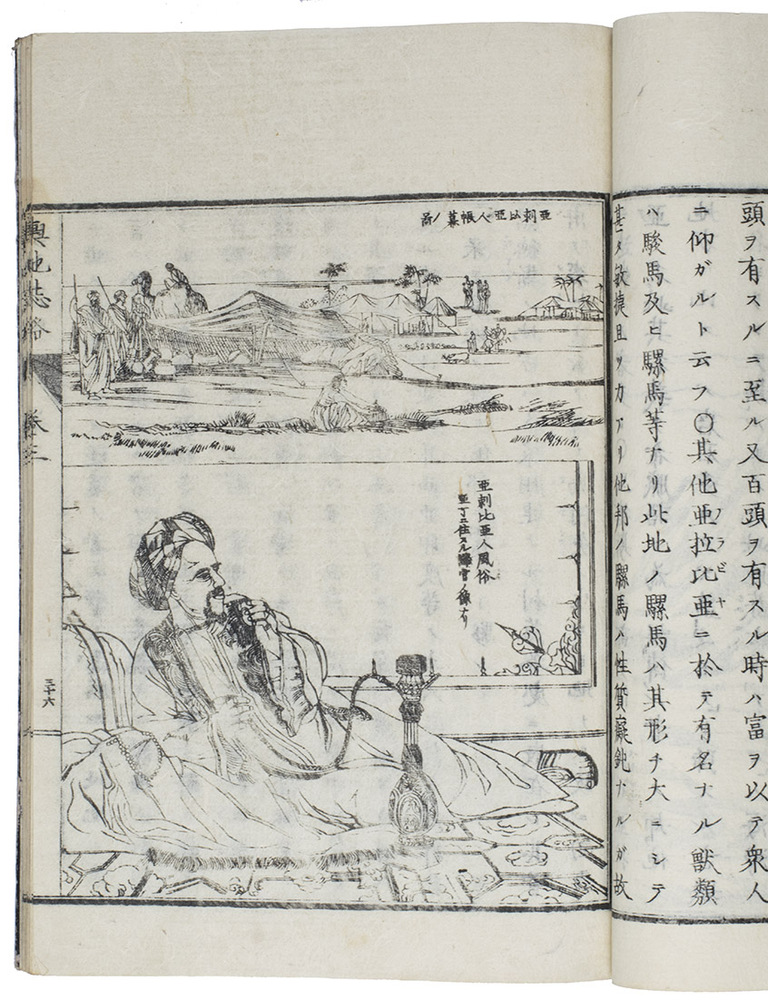 頭ヲ有スルニ至ル又百頭ヲ有スル時ハ富ヲ以テ衆人
ニ仰ガルト云フ〇其他亞拉比亞ニ於テ有名ナル獸類
アラビヤ
ハ駿馬及ヒ騾馬等ナリ此地ノ騾馬ハ其形チ大ニシテ
甚タ敏捷且ツ力アリ他邦ノ騾馬ハ性質癡鈍ナルガ故
亞剌比亞人帳幕ノ啚
亞刺比亞人風俗
亞丁ニ住スル官ノ像ナリ
輿地誌畧
卷三
三十六